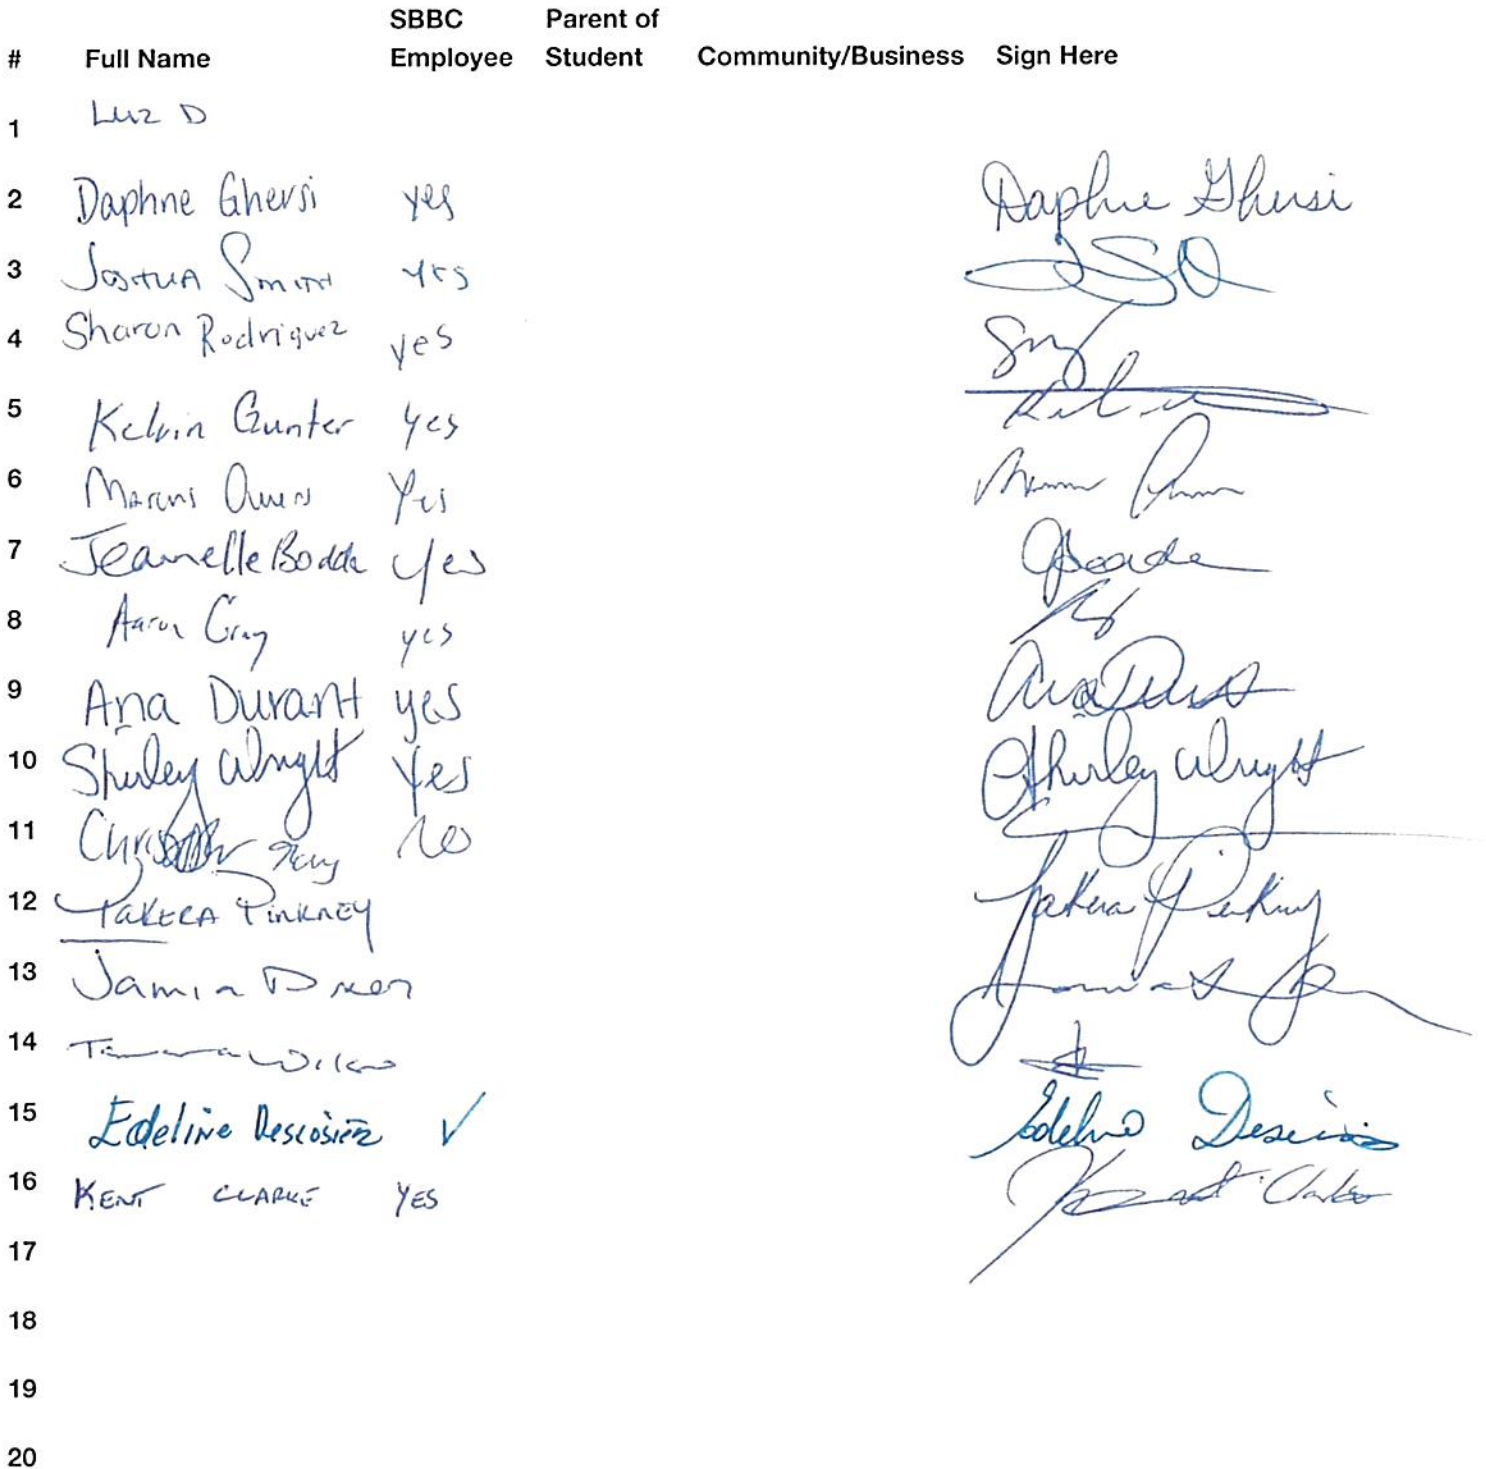 SBBC Parent of
# Full Name Employee Student Community/Business Sign Here
1 Luz D
2 Daphne Ghersi yes Daphne Ghersi
3 Joshua Smith yes
4 Sharon Rodriguez yes
5 Kelvin Gunter yes
6 Marcus Owens Yes
7 Jeanelle Bodde yes
8 Aaron Gray yes
9 Ana Durant yes Ana Durant
10 Shirley Wright Yes Shirley Wright
11 No
12 Takera Pinkney Takera Pinkney
13 Jamia
14
15 Edeline ✓ Edeline
16 Kent Clarke Yes Kent Clarke
17
18
19
20